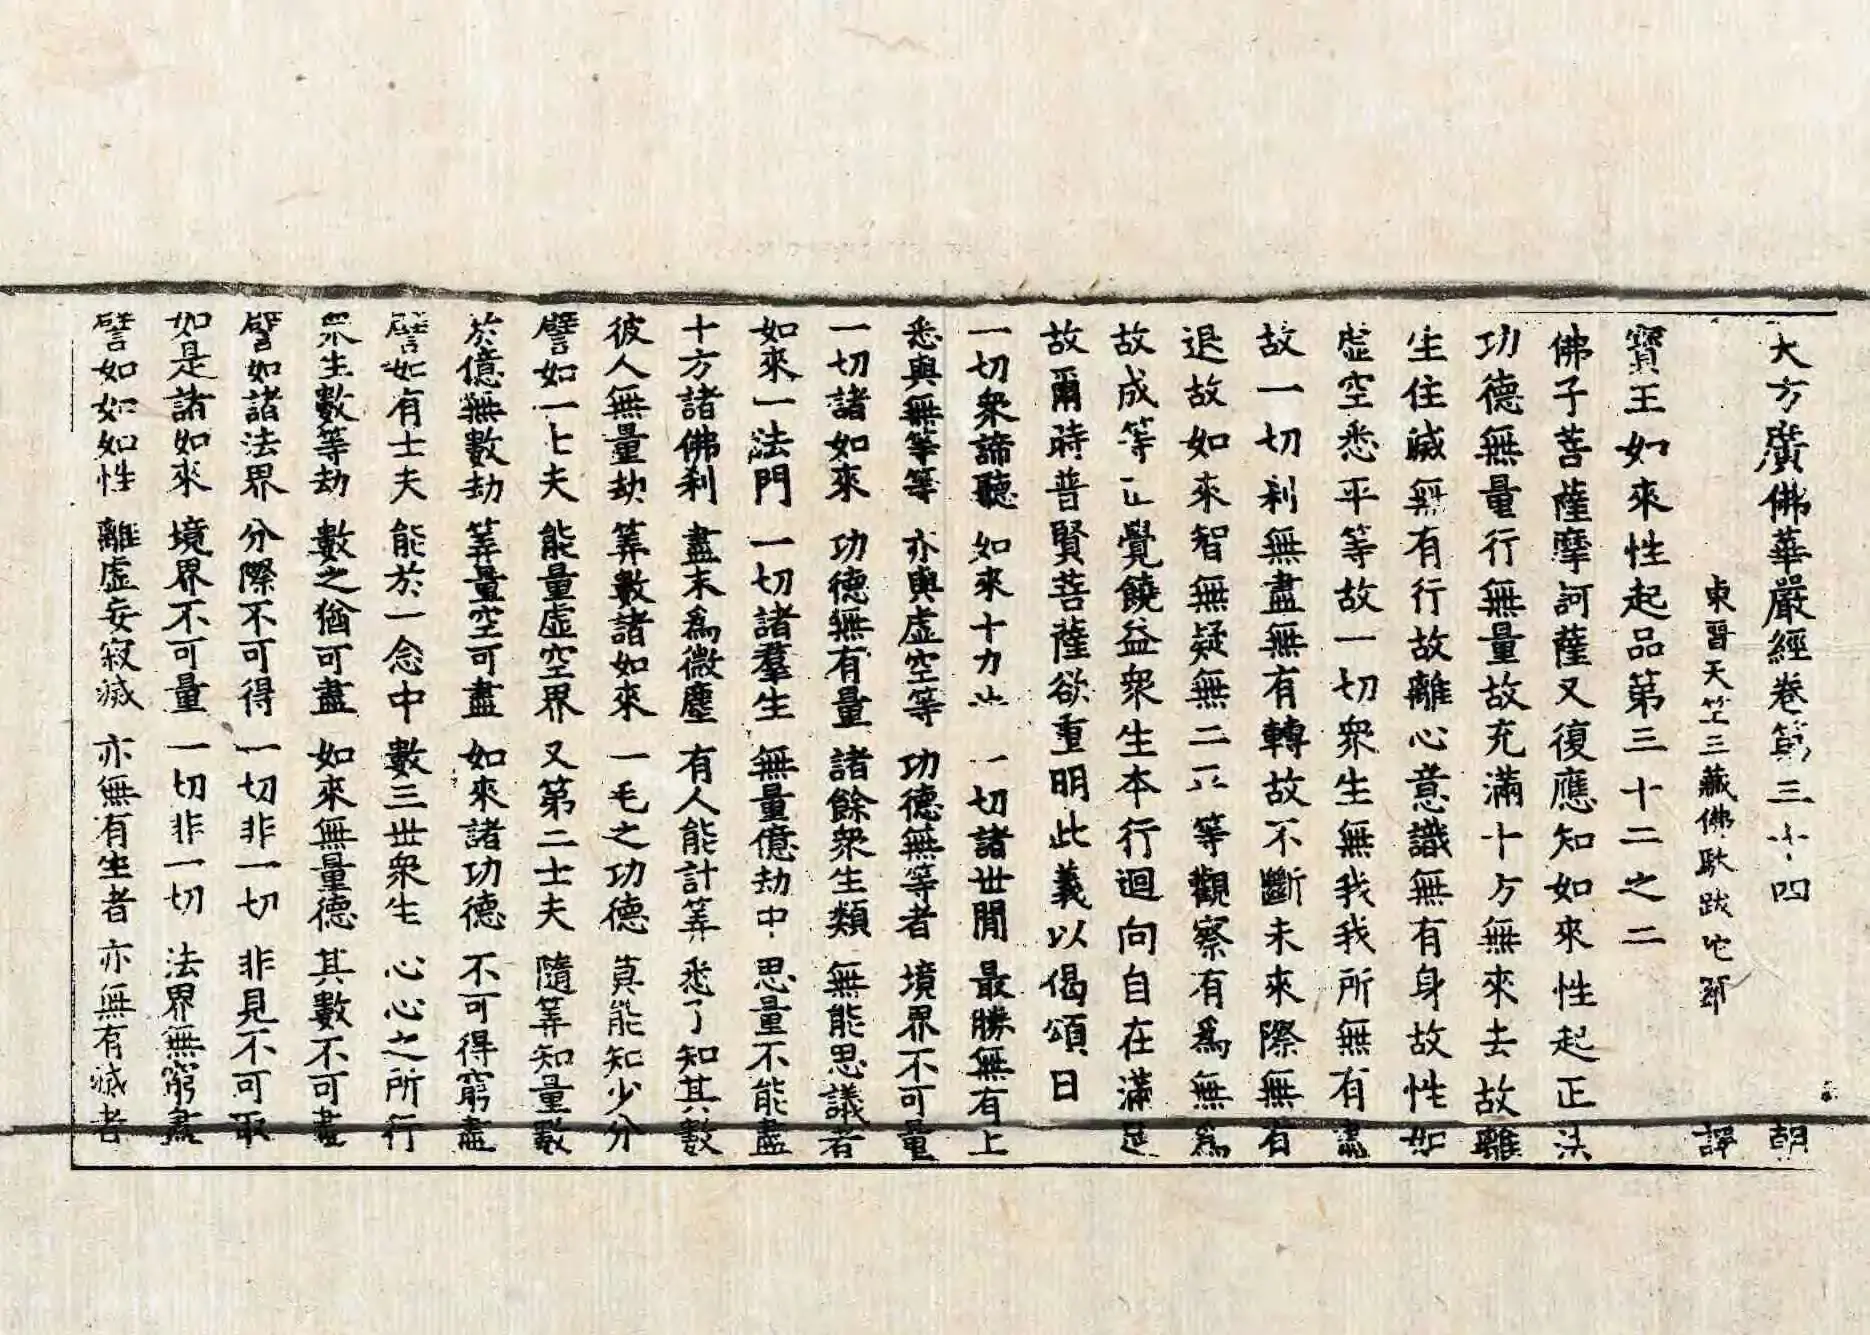 大方廣佛華嚴經卷第三十四 朝
東晉天竺三藏佛馱跋陀羅 譯
寶王如來性起品第三十二之二
佛子菩薩摩訶薩又復應知如來性起正法
功德無量行無量故充滿十方無來去故離
生住滅無有行故離心意識無有身故性如
虛空悉平等故一切眾生無我我所無有盡
故一切刹無盡無有轉故不斷未來際無有
退故如來智無疑無二正等觀察有為無為
故成等正覺饒益眾生本行迴向自在滿足
故爾時普賢菩薩欲重明此義以偈頌曰
一切眾諦聽 如來十力 一切諸世間 最勝無有上
悉與無等等 亦與虛空等 功德無等者 境界不可量
一切諸如來 功德無有量 諸餘眾生類 無能思議者
如來一法門 一切諸羣生 無量億劫中 思量不能盡
十方諸佛刹 盡末為微塵 有人能計筭 悉了知其數
彼人無量劫 筭數諸如來 一毛之功德 莫能知少分
譬如一士夫 能量虛空界 又第二士夫 隨筭知量數
於億無數劫 筭量空可盡 如來諸功德 不可得窮盡
譬如有士夫 能於一念中 數三世眾生 心心之所行
眾生數等劫 數之猶可盡 如來無量德 其數不可盡
譬如諸法界 分際不可得 一切非一切 非見不可取
如是諸如來 境界不可量 一切非一切 法界無窮盡
譬如如如性 離虛妄寂滅 亦無有生者 亦無有滅者